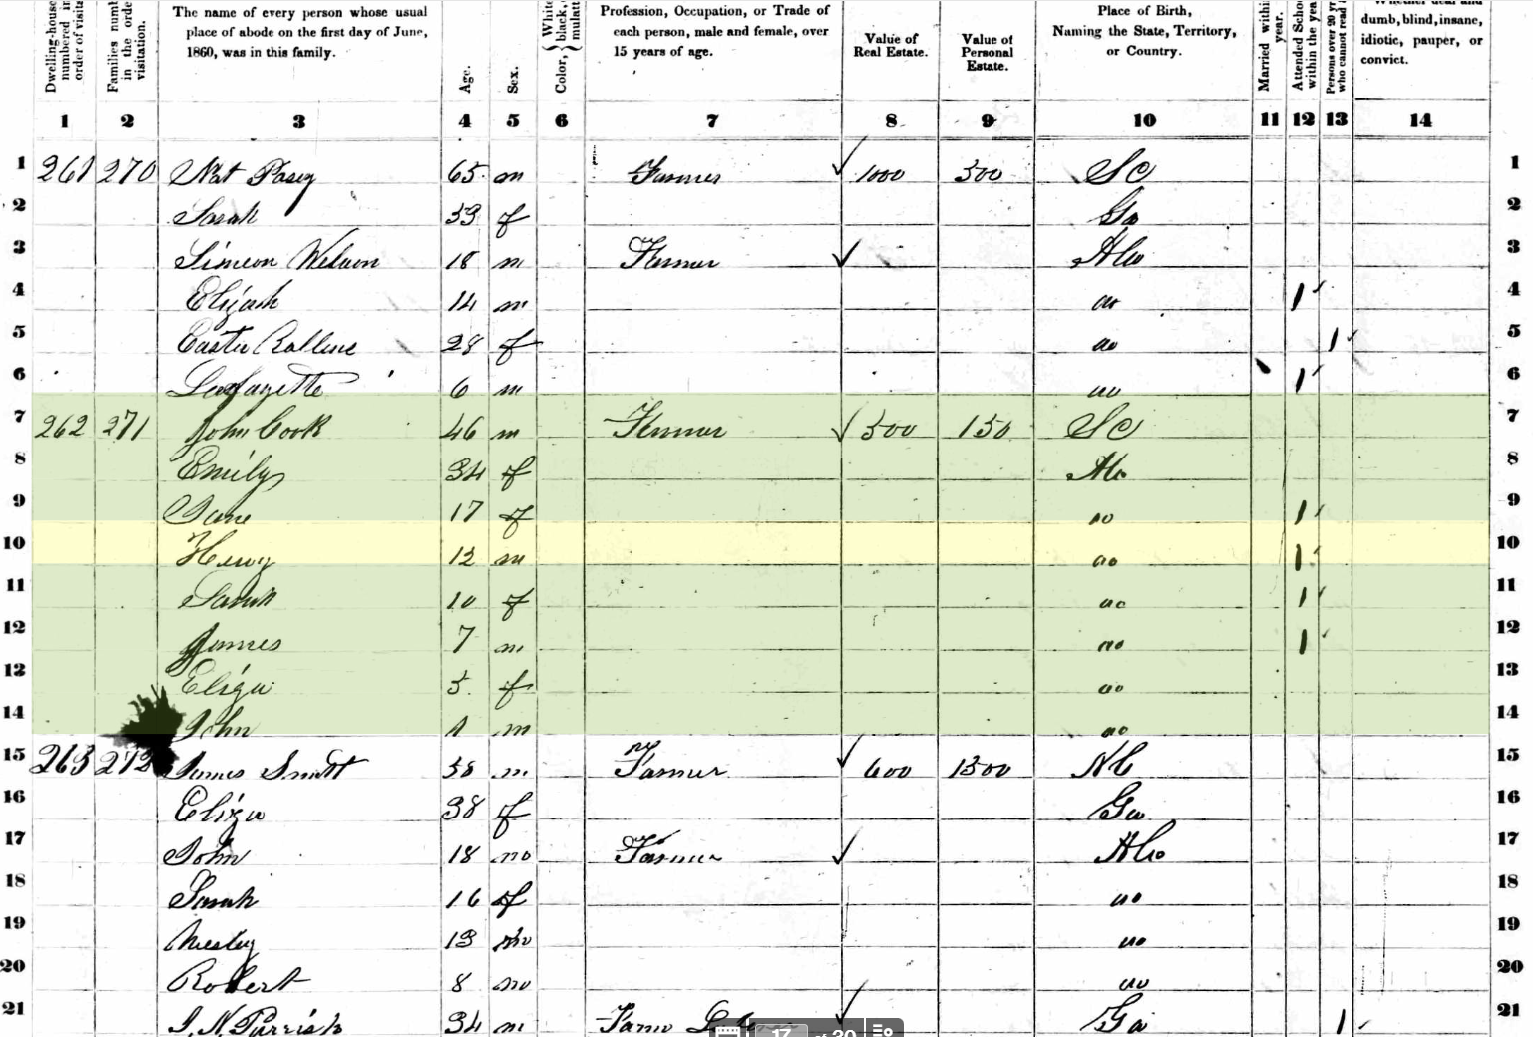 Dwelling-house numbered in order of visita Families numb in the orde visitation. The name of every person whose usual place of abode on the first day of June, 1860, was in this family. Age. Sex. Color, { White black, mulatt Profession, Occupation, or Trade of each person, male and female, over 15 years of age. Value of Real Estate. Value of Personal Estate. Place of Birth, Naming the State, Territory, or Country. Married within year. Attended Schoo within the yea Persons over 20 yr who cannot read Whether deaf and dumb, blind, insane, idiotic, pauper, or convict.
1 2 3 4 5 6 7 8 9 10 11 12 13 14
1 261 270 Nat Posey 65 m Farmer ✓ 1000 300 SC 1
2 Sarah 53 f Ga 2
3 Simeon Wilson 18 m Farmer ✓ Ala 3
4 Elijah 14 m do 1 4
5 Easter 28 f do 1 5
6 Lafayette 6 m do 1 6
7 262 271 John Cook 46 m Farmer ✓ 500 150 SC 7
8 Emily 34 f Ala 8
9 Jane 17 f do 1 9
10 Henry 12 m do 1 10
11 Sarah 10 f do 1 11
12 James 7 m do 1 12
13 Eliza 5 f do 13
14 John 1 m do 14
15 263 272 James Smith 58 m Farmer ✓ 600 1500 NC 15
16 Eliza 38 f Ga 16
17 John 18 m Farmer ✓ Ala 17
18 Sarah 16 f do 18
19 Wesley 13 m do 19
20 Robert 8 m do 20
21 J. N. Parrish 34 m Farm ✓ Ga 1 21
17 of 30